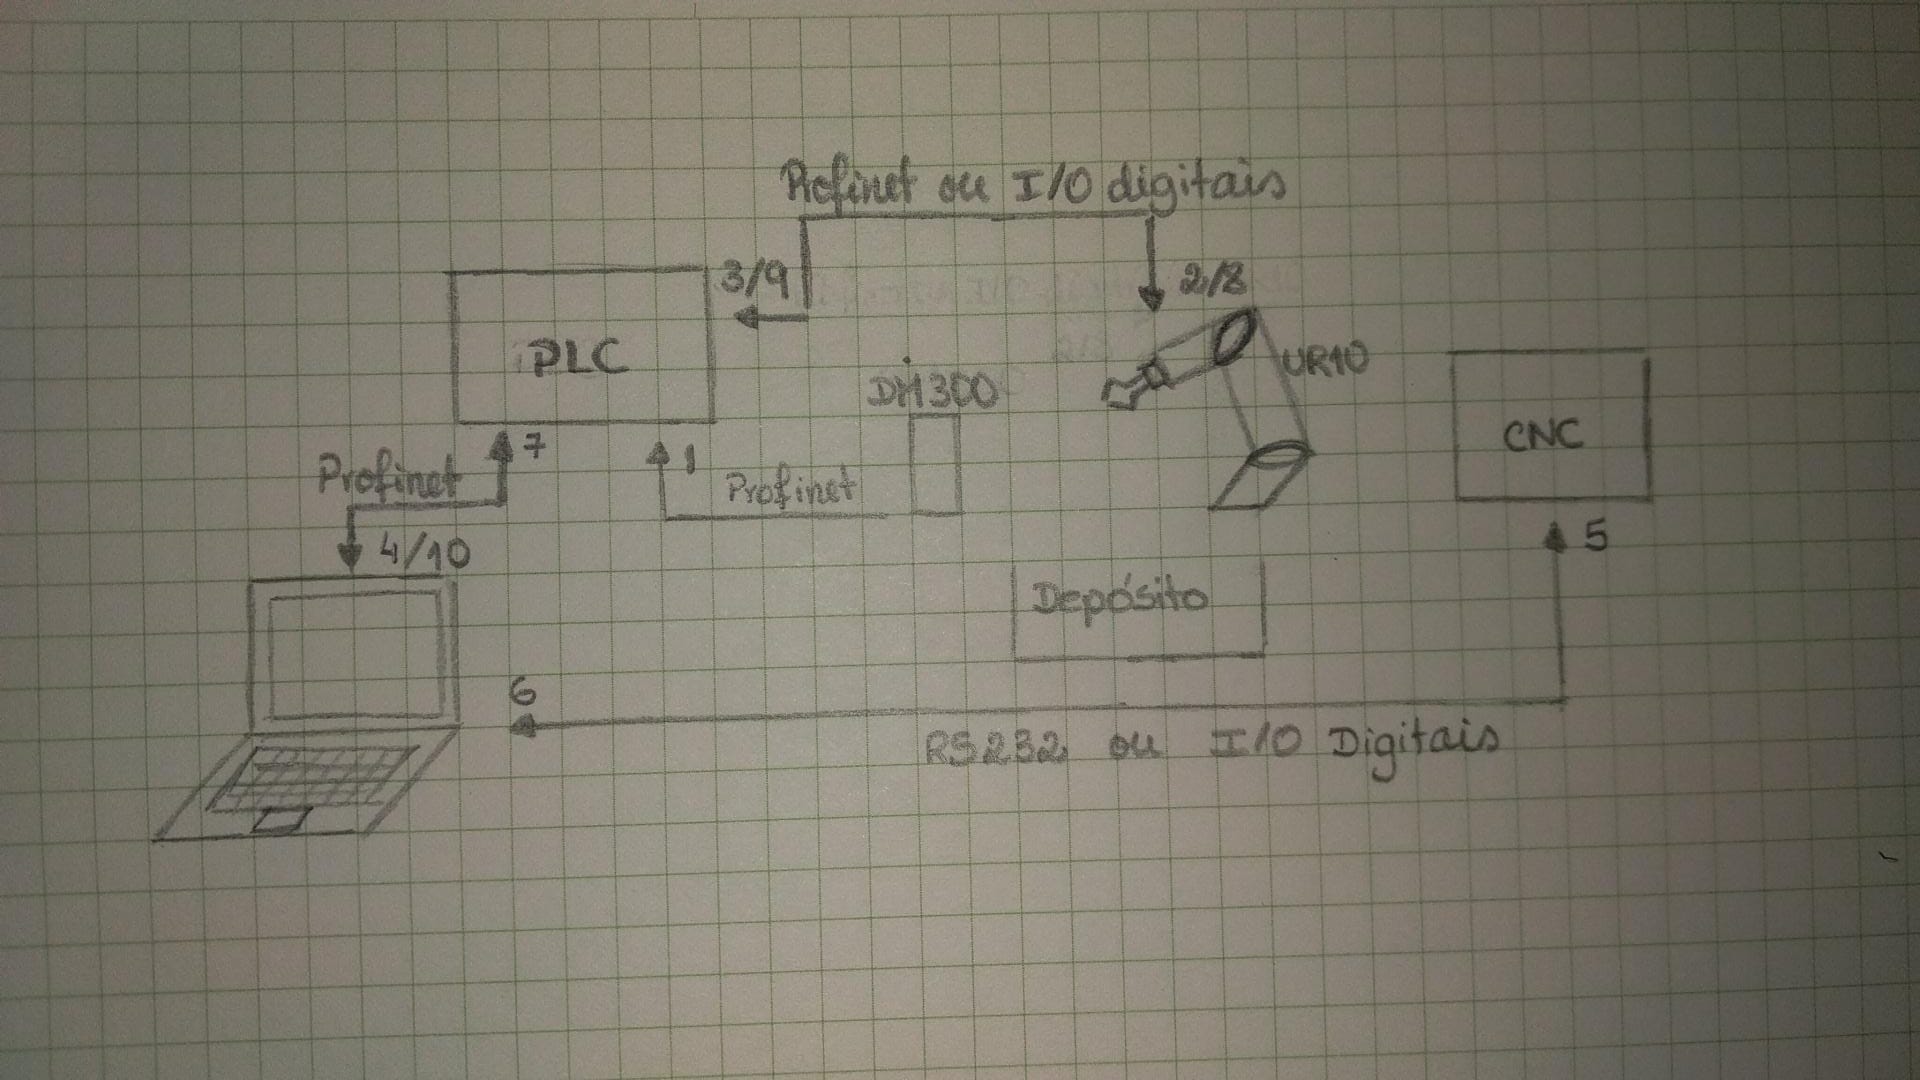 Profinet ou I/O digitais
3/9
2/8
PLC
UR10
DM300
CNC
7
1
Profinet
Profinet
5
4/10
Depósito
6
RS232 ou I/O Digitais